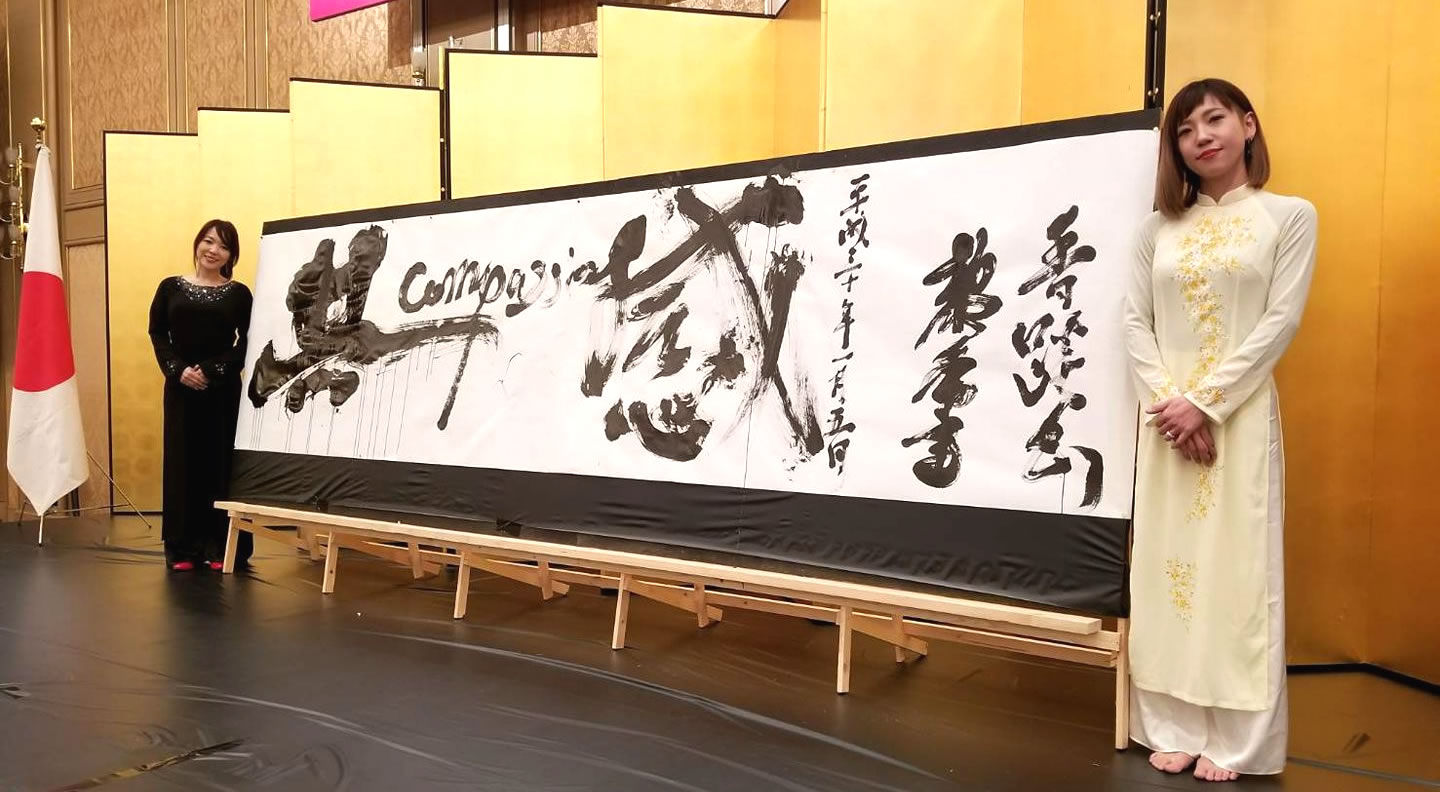 共
compassion
感
平成三十年一月五日